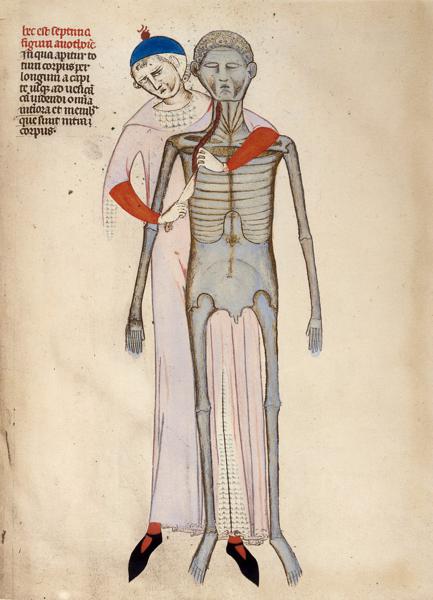 hec est septima
figura anothomie
In qua apitur to
tum corpus per
longum a capi
te usq; ad uesicā
ad uidendū omīa
intiora et memb
que sunt intra
corpus.